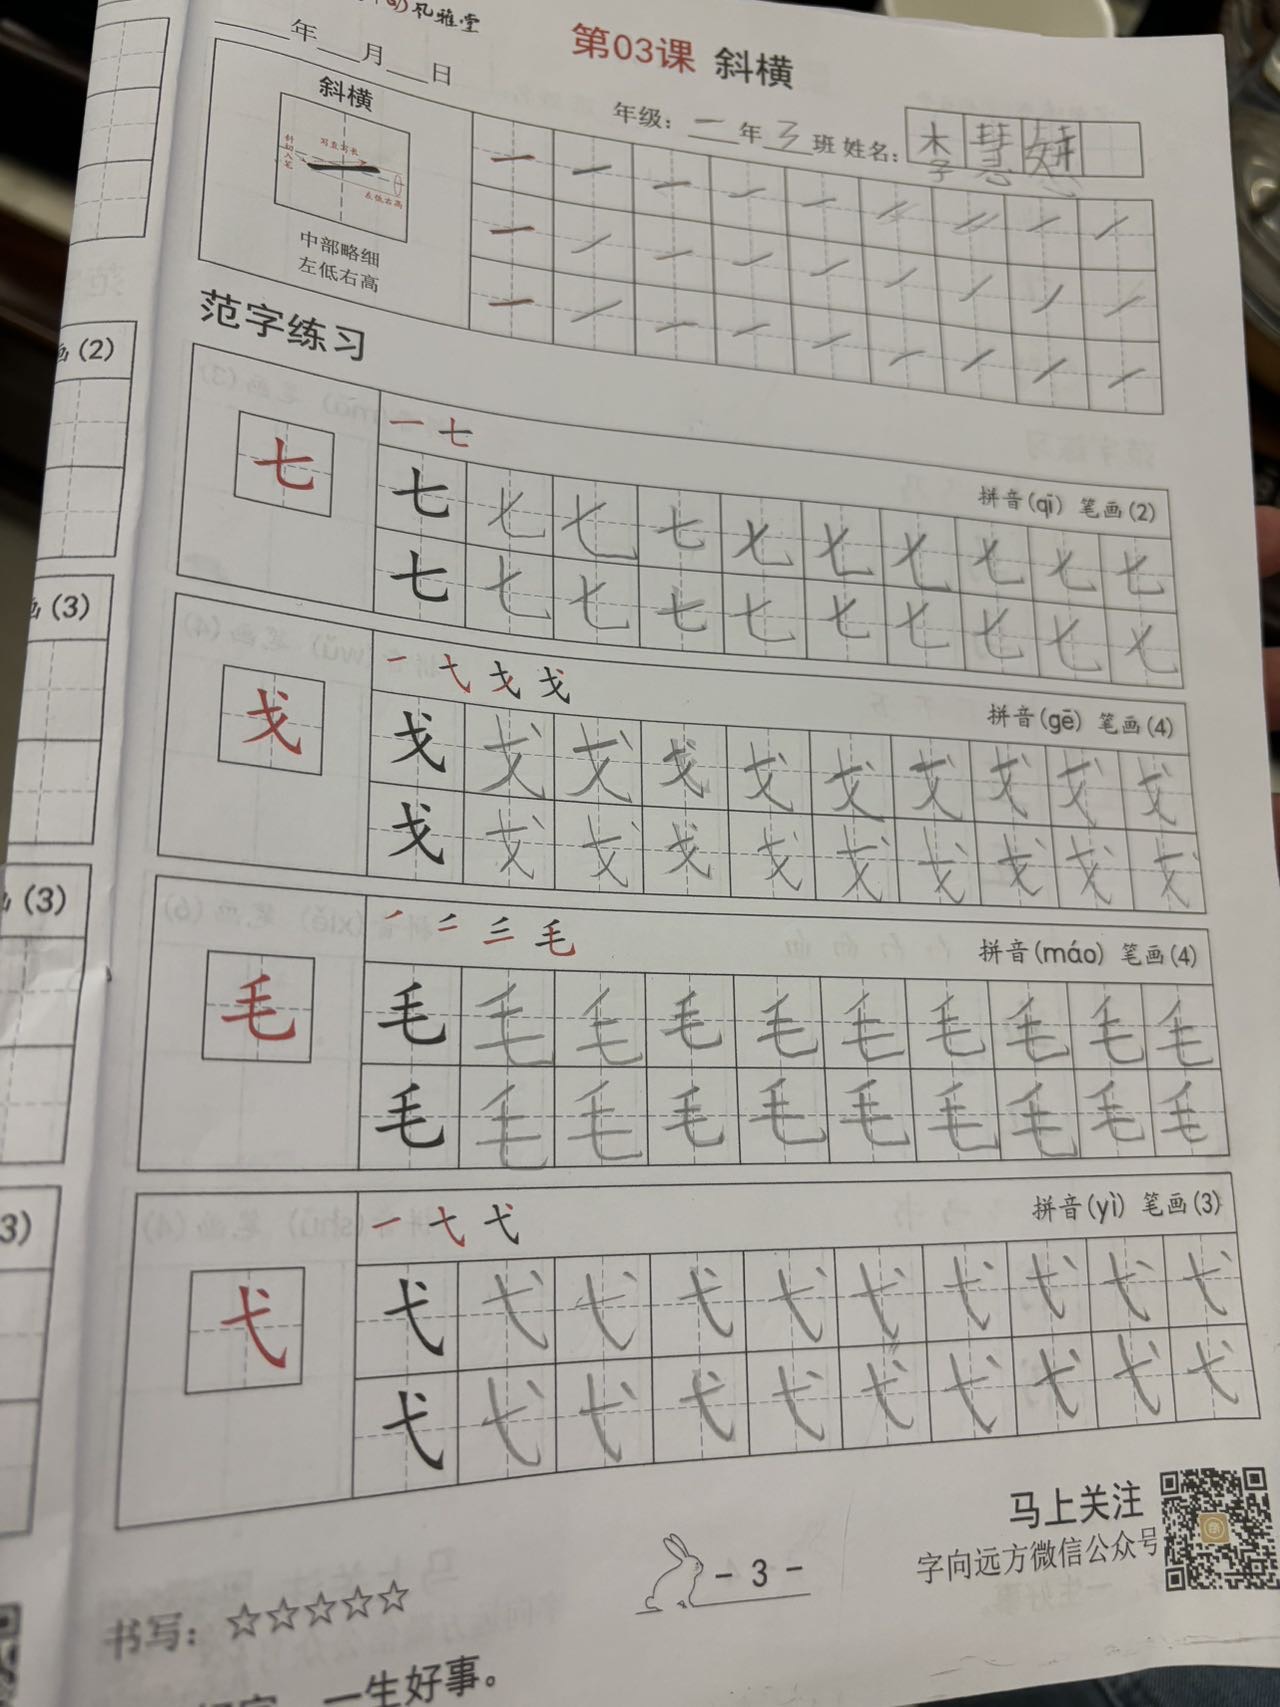 风雅堂
第03课 斜横
年 月 日
年级：一年3班 姓名：李慧妍
斜横
斜切入笔
写直写长
左低右高
中部略细
左低右高
一 一 一 一 一 一 一 一 一
一 一 一 一 一 一 一 一 一
一 一 一 一 一 一 一 一 一
范字练习
一 七
拼音(qī) 笔画(2)
七
七 七 七 七 七 七 七 七 七 七
七 七 七 七 七 七 七 七 七 七
一 弋 戈 戈
拼音(gē) 笔画(4)
戈
戈 戈 戈 戈 戈 戈 戈 戈 戈 戈
戈 戈 戈 戈 戈 戈 戈 戈 戈 戈
毛
拼音(máo) 笔画(4)
毛
毛 毛 毛 毛 毛 毛 毛 毛 毛 毛
毛 毛 毛 毛 毛 毛 毛 毛 毛 毛
一 弋 弋
拼音(yì) 笔画(3)
弋
弋 弋 弋 弋 弋 弋 弋 弋 弋 弋
弋 弋 弋 弋 弋 弋 弋 弋 弋 弋
马上关注
字向远方微信公众号
- 3 -
书写：☆☆☆☆☆
一生好事。
画(2)
画(3)
(3)
3)